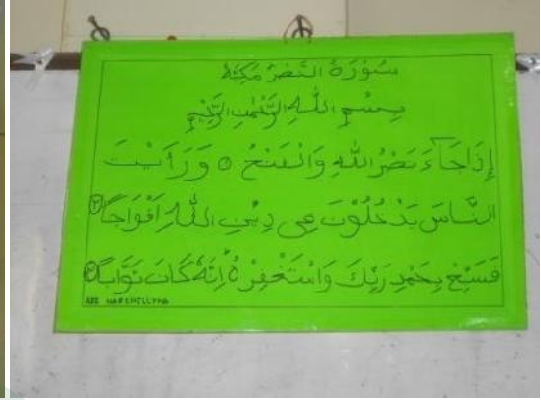 سُوْرَةُ النَّصْرُ مَكِيَّة
بِسْمِ اللَّهِ الرَّحْمٰنِ الرَّحِيْمِ
إِذَا جَآءَ نَصْرُ اللَّهِ وَالْفَتْحُ ٥ وَرَأَيْتَ
النَّاسَ يَدْخُلُوْنَ فِى دِيْنِ اللَّهِ اَفْوَاجًا ٢
فَسَبِّحْ بِحَمْدِ رَبِّكَ وَاسْتَغْفِرْهُ اِنَّهُ كَانَ تَوَّابًا ٣